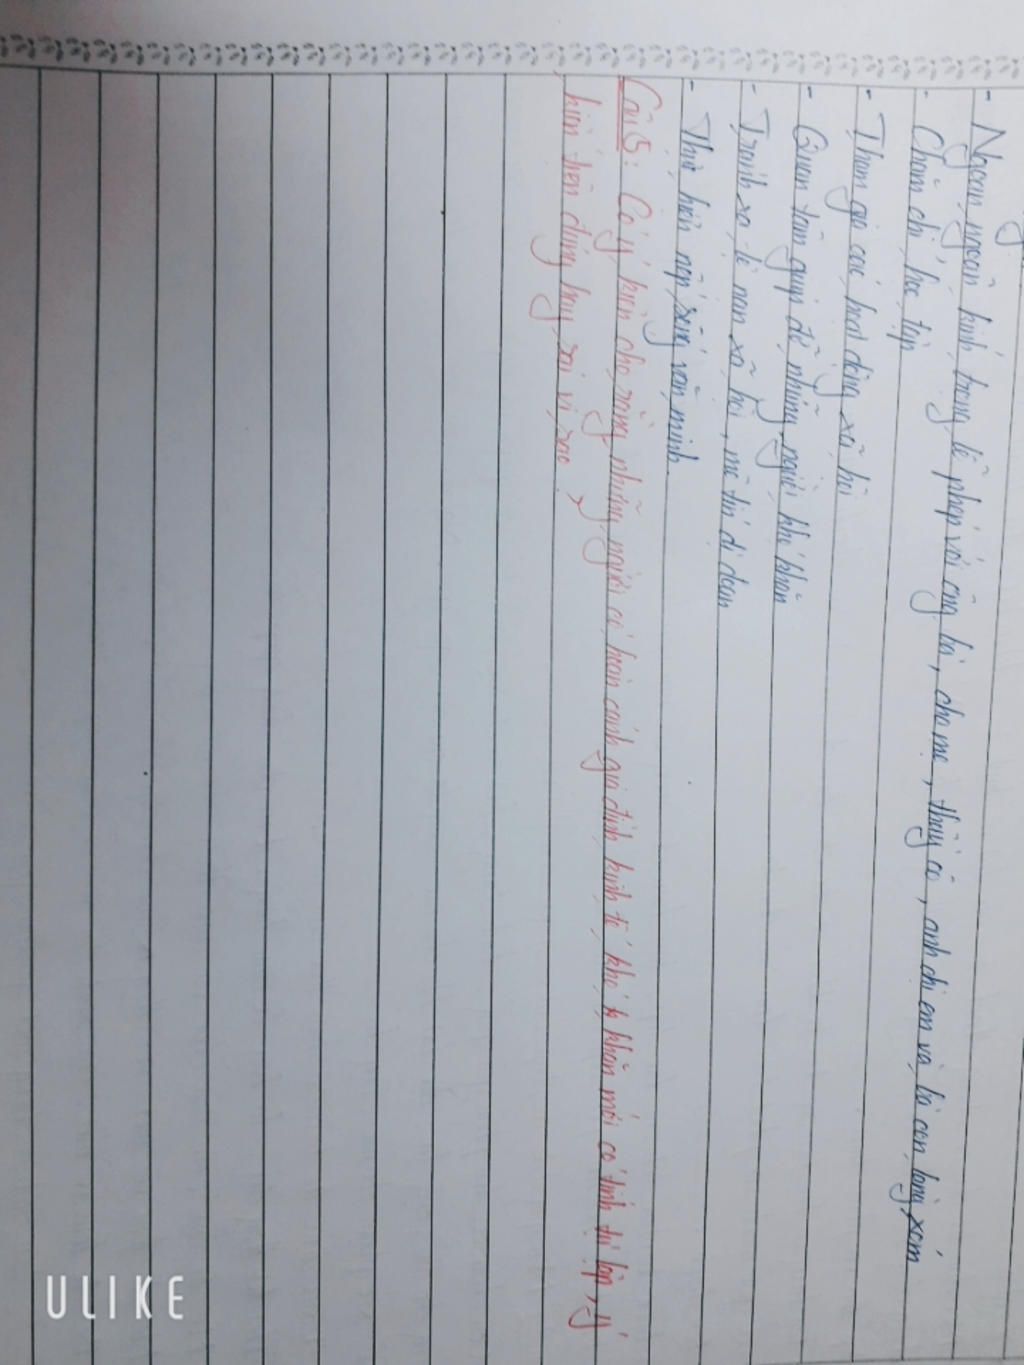 - Ngoan ngoãn kính trọng lễ phép với ông bà, cha mẹ, thầy cô, anh chị em và bà con làng xóm
- Chăm chỉ học tập
- Tham gia các hoạt động xã hội
- Quan tâm giúp đỡ những người khó khăn
- Tránh xa tệ nạn xã hội, mê tín dị đoan
- Thực hiện nếp sống văn minh.
Câu 5: Có ý kiến cho rằng những người có hoàn cảnh gia đình kinh tế khó khăn mới có tính tự lập, ý
kiến trên đúng hay sai vì sao?
ULIKE